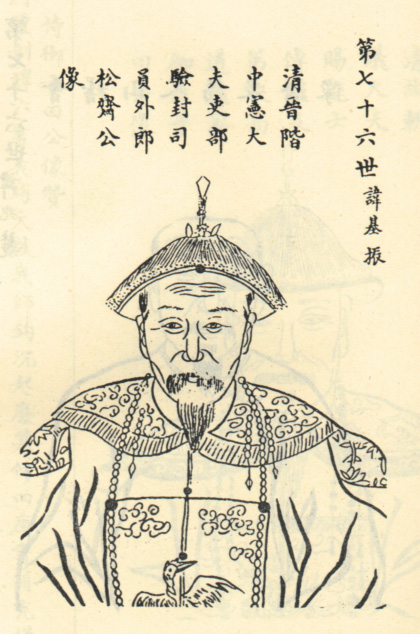 第七十六世諱基振
清晉階
中憲大
夫吏部
驗封司
員外郎
松齋公
像